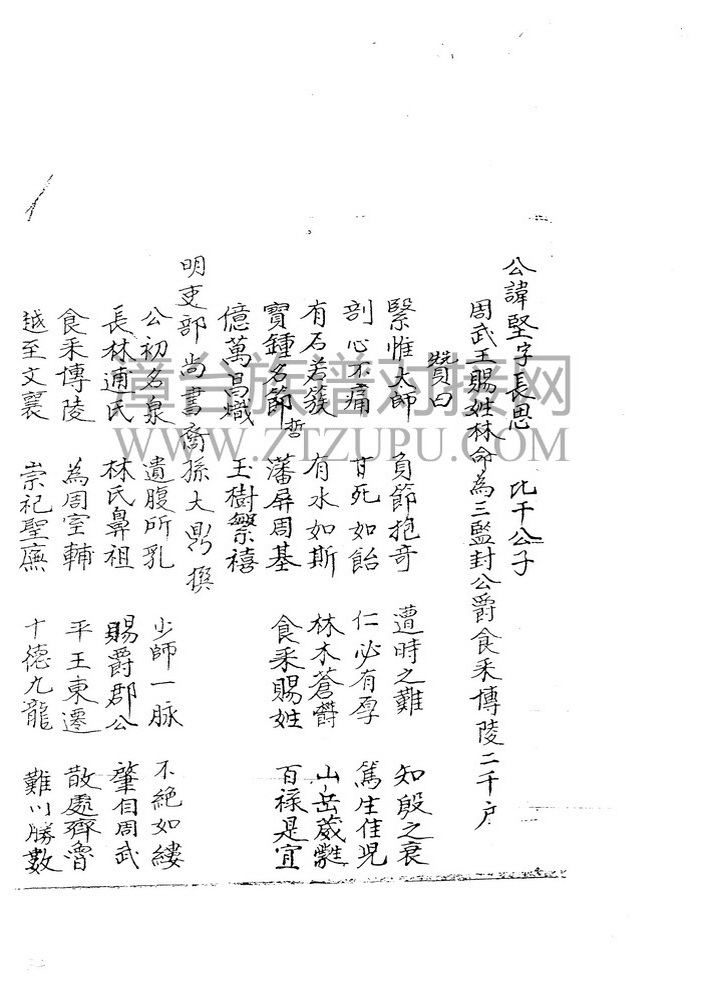 公諱堅字長思 比干公子
周武王賜姓林命為三監封公爵食采博陵二千户
贊曰
緊惟太師 負節抱奇 遭時之難 知殷之衰
剖心不痛 甘死如飴 仁必有孚 篤生佳児
有石若簇 有水如斯 林木蒼欝 山岳葳蕤
寳鍾名節哲 藩屏周基 食采賜姓 百禄是宜
億萬昌熾 玉樹繁禧
明吏部尚書裔孫大鼐撰
公初名泉 遺腹所乳 少師一脉 不絶如縷
長林逋氏 林氏鼻祖 賜爵郡公 肇自周武
食采博陵 為周室輔 平王東遷 散處齊魯
越至文襄 崇祀聖廡 十德九龍 難以勝數
漳台族谱对接网
WWW.ZTZUPU.COM